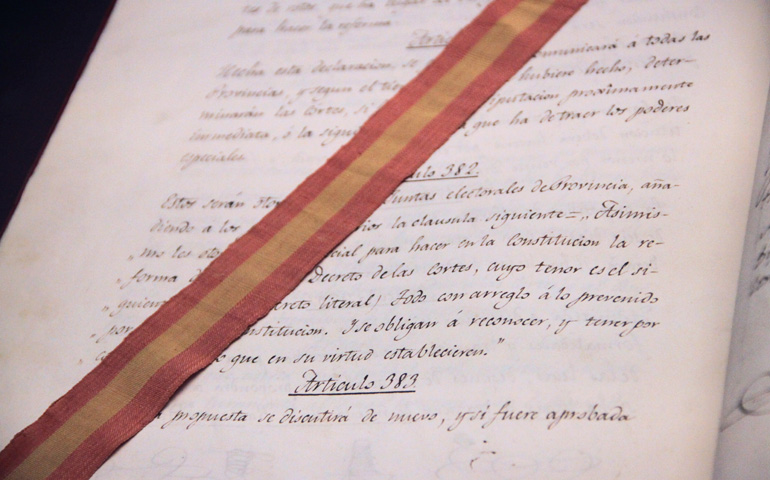 tes de votos, que ha
para hacer la reforma
Artic
Hecha esta declaracion, se comunicará á todas las
Provincias, y segun el tie hubiere hecho, deter-
minarán las Cortes, si iputacion proximamente
inmediata, ó la sigui que ha de traer los poderes
especiales.
culo 382.
Estos serán oto Juntas electorales de Provincia, aña-
diendo á los rios la clausula siguiente = „Asimis-
„mo les oto cial para hacer en la Constitucion la re-
„forma d Decreto de las Cortes, cuyo tenor es el si-
„guien creto literal) Todo con arreglo á lo prevenido
„por nstitucion. Y se obligan á reconocer, y tener por
„c que en su virtud establecieren."
Artículo 383.
a propuesta se discutirá de nuevo, y si fuere aprobada